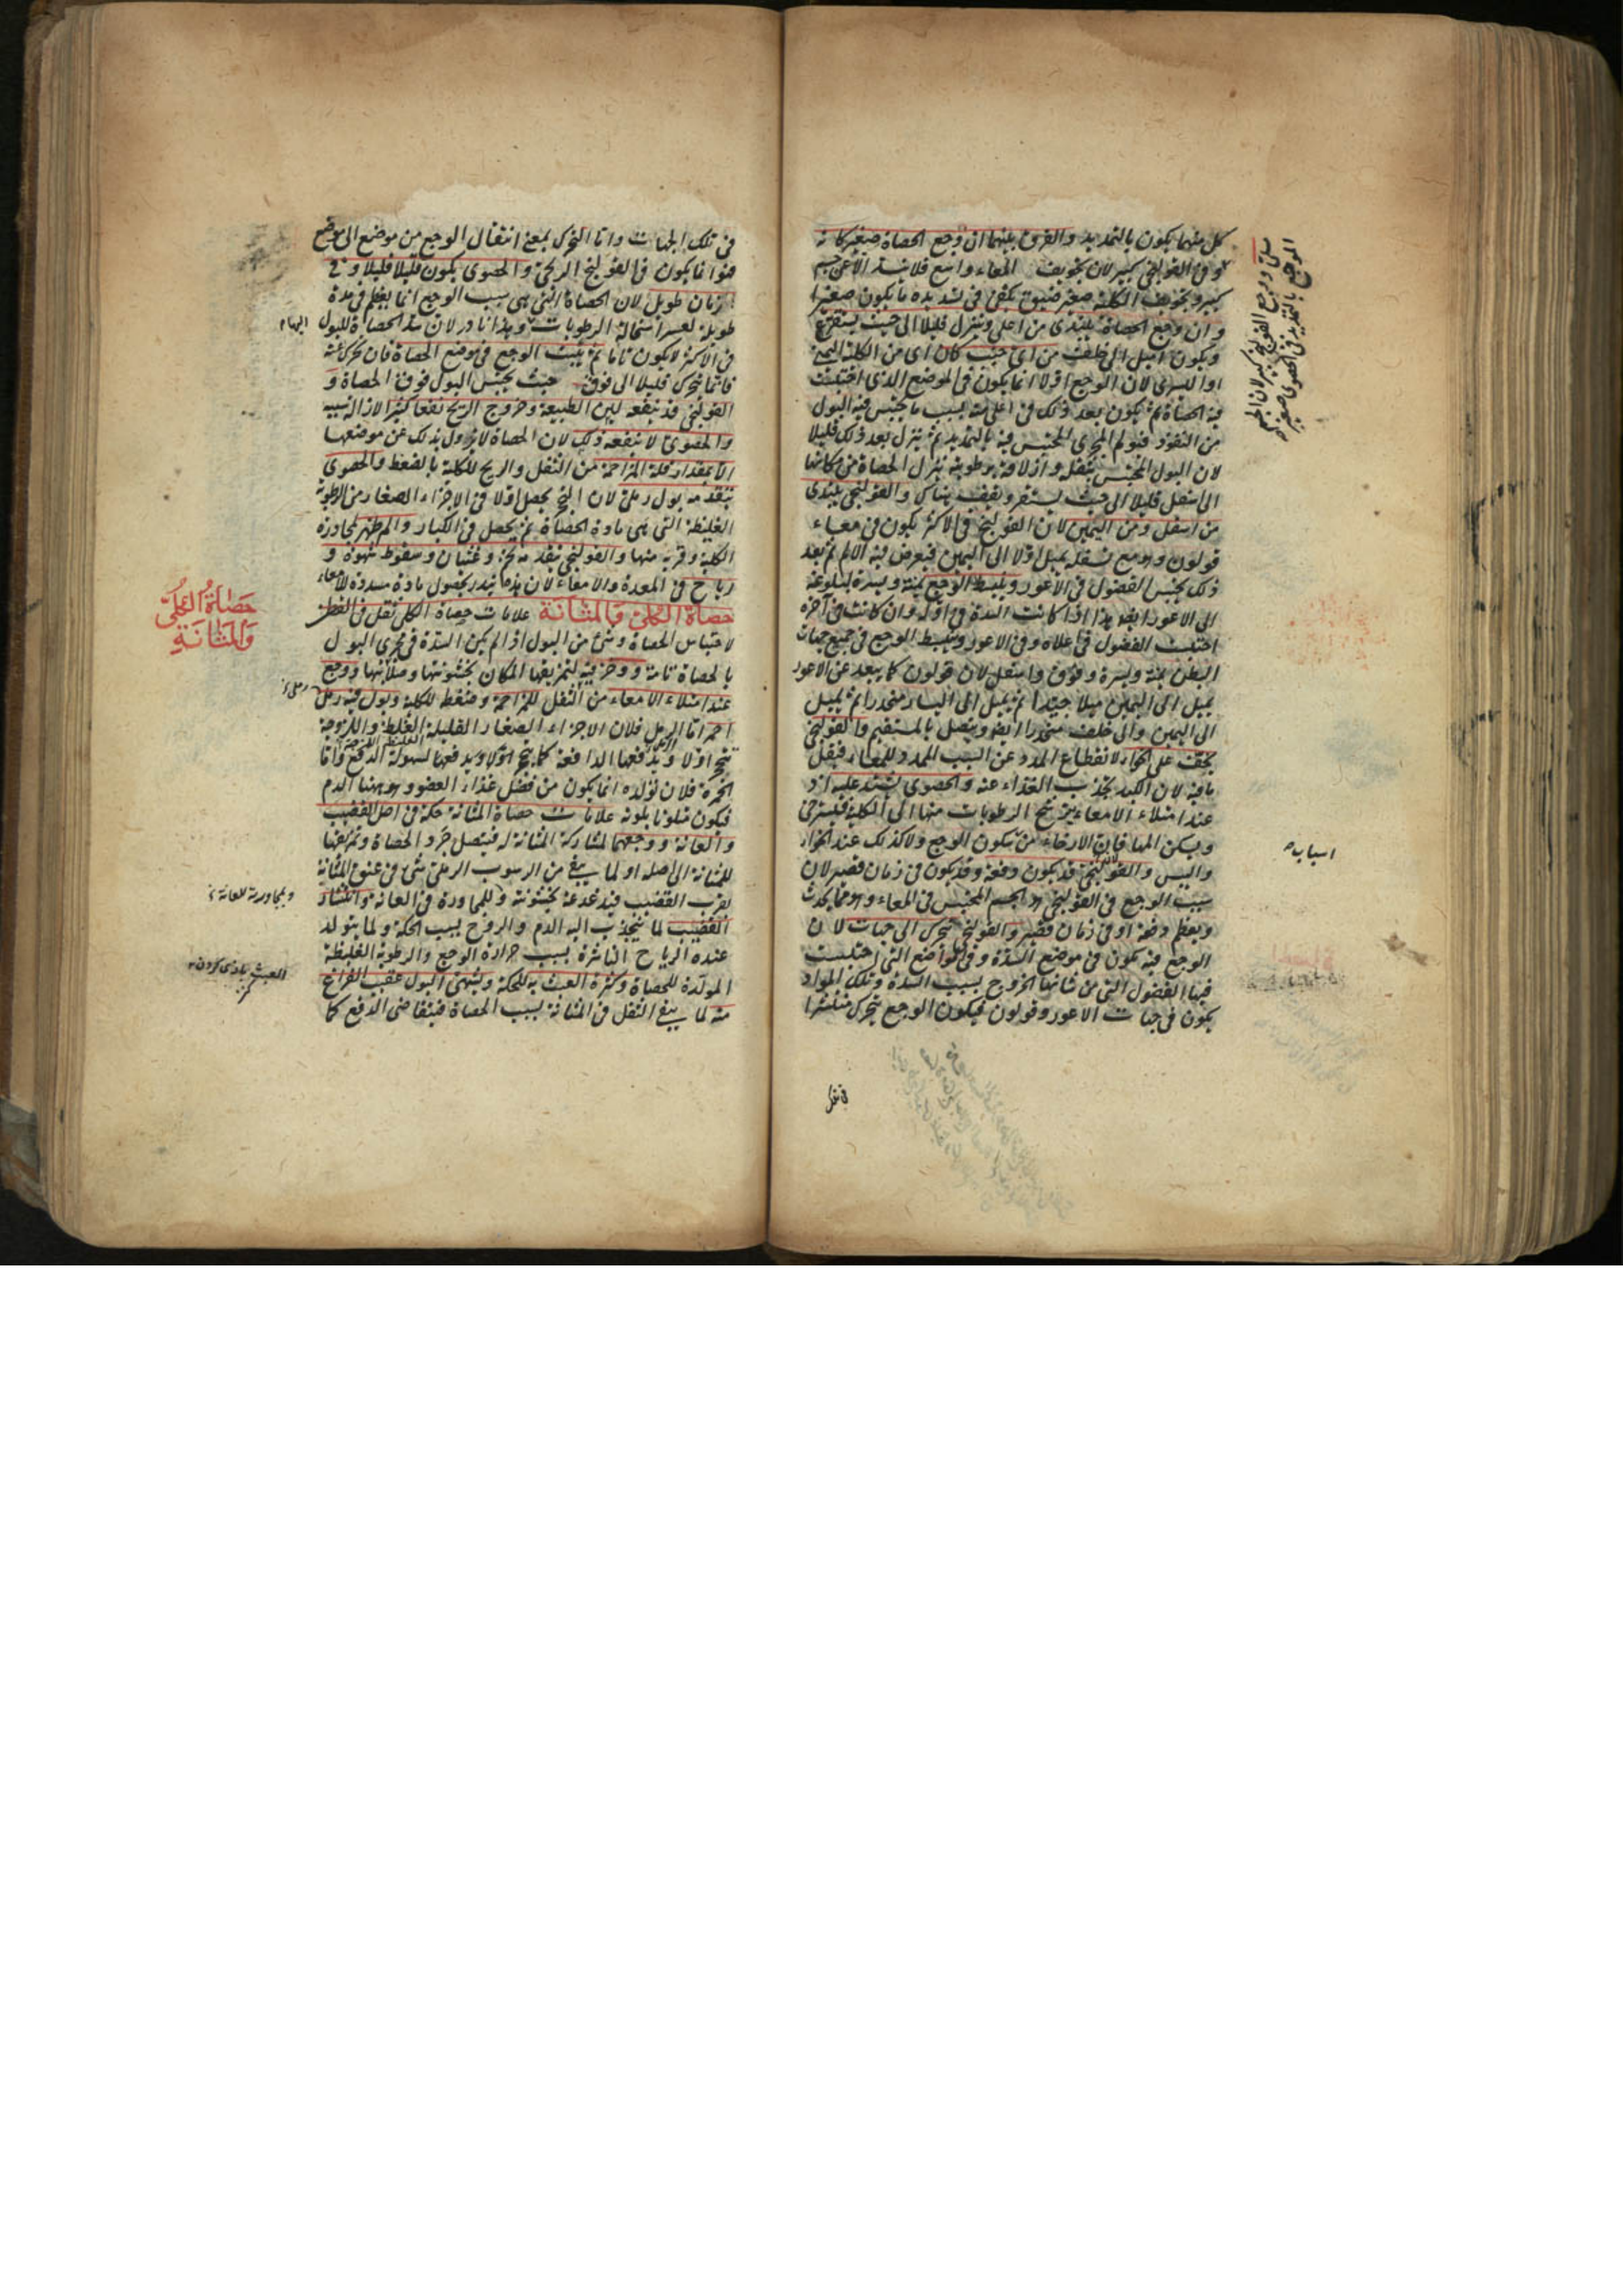 كل منهما يكون بالتمديد والفرق بينهما ان وجع الحصاة صغير كانه
وفى القولنجى كبير لان تجويف المعاء واسع فلا يسده الا عن جسم
كبير وتجويف الكلية صغير ضيق يكفى فى تمديده ما يكون صغيرا
وان وجع الحصاة يبتدى من اعلى وينزل قليلا الى حيث يستقر
ويكون اميل الى خلف من اى جنب كان اى من الكلية اليمنى
او اليسرى لان الوجع اولا انما يكون فى الموضع الذى احتبست
فيه الحصاة ثم يكون بعد ذلك فى اعلى منه بسبب ما يحتبس فيه البول
من النفوذ فيولم المجرى المحتبس فيه بالتمديد ثم ينزل بعد ذلك قليلا
لان البول المحتبس بثقله وازلاقه برطوبته ينزل الحصاة من مكانها
الى اسفل قليلا الى حيث يستقر ويقف هناك والقولنجى يبتدى
من اسفل ومن اليمين لان القولنج فى الاكثر يكون فى معاء
قولون وهو مع تسفله يميل اولا الى اليمين فيعرض فيه الالم ثم بعد
ذلك يحتبس الفضول فى الاعور وينبسط الوجع يمنة ويسرة لبلوغه
الى الاعور ايضا هذا اذا كانت السدة فى اوله وان كانت فى آخره
احتبست الفضول فى اعلاه وفى الاعور وينبسط الوجع فى جميع جهات
البطن يمنة ويسرة وفوق واسفل لان قولون كما يبعد عن الاعور
يميل الى اليمين ميلا جيدا ثم يميل الى اليسار منحدرا ثم يميل
الى اليمين والى خلف منحدرا ايضا ويتصل بالمستقيم والقولنجى
يخف على الخواء لانقطاع المدد عن السبب الممدد للمعاء فيقل
ما فيه لان الكبد يجذب الغذاء عنه والحصوى يشتد عليه اذ
عند امتلاء الامعاء يترشح الرطوبات منها الى الكلية فيسترخى
ويسكن المها فان الارخاء من سكون الوجع ولا كذلك عند الخواء
واليبس والقولنجى قد يكون دفعة وقد يكون فى زمان قصير لان
سبب الوجع فى القولنجى هو الجسم المحتبس فى المعاء وهو مما يحدث
ويعظم دفعة او فى زمان قصير والقولنجى يتحرك الى جهات لان
الوجع فيه يكون فى موضع السدة وفى المواضع التى احتبست
فيها الفضول التى من شانها الخروج بسبب السدة وتلك المواد
يكون فى جهات الاعور وقولون فيكون الوجع يتحرك منتشرا
اسباب
فى تلك الجهات واما التحرك بمعنى انتقال الوجع من موضع الى موضع
فهو انما يكون فى القولنج الريحى والحصوى يكون قليلا قليلا وفى
زمان طويل لان الحصاة التى هى سبب الوجع انما يعظم فى مدة
طويلة لعسر استحالة الرطوبات وهذا نادر لان سد الحصاة للبول
فى الاكثر لا يكون تاما ثم يثبت الوجع فى موضع الحصاة فان تحرك عنه
فانما يتحرك قليلا الى فوق حيث يحتبس البول فوق الحصاة و
القولنجى قد ينفعه لين الطبيعة وخروج الريح نفعا كثيرا لازالة سببه
والحصوى لا ينفعه ذلك لان الحصاة لا يزول بذلك عن موضعها
الا بمقدار قلة المزاحمة من الثفل والريح للكلية بالضغط والحصوى
يتقدمه بول رملى لان التحجر يحصل اولا فى الاجزاء الصغار من الرطوبة
الغليظة التى هى مادة الحصاة ثم يحصل فى الكبار والم ظهر لمجاورة
الكلية وقربه منها والقولنجى يتقدمه تخم وغثيان وسقوط شهوة و
رياح فى المعدة والامعاء لان هذه ينذر بحصول مادة مسددة للامعاء
حصاة الكلى والمثانة علامات حصاة الكلى ثقل فى القطن
لاحتباس الحصاة وشئ من البول اذا لم يكن السدة فى مجرى البول
بالحصاة تامة ووخز فيه لتمزيقها المكان بخشونتها وصلابتها ووجع
عند امتلاء الامعاء من الثفل للمزاحمة وضغط للكلية وبول فيه رمل
احمر اما الرمل فلان الاجزاء الصغار القليلة الغلظ واللزوجة
تتحجر اولا ويدفعها الدافعة كما يتحجر اولا ويدفعها لسهولة الدفع واما
الحمرة فلان تولده انما يكون من فضل غذاء العضو وهو ههنا الدم
فيكون متلونا بلونه علامات حصاة المثانة حكة فى اصل القضيب
والعانة ووجعهما لمشاركة المثانة له فيتصل جرد الحصاة وتمزيقها
للمثانة الى اصله او لما يبقى من الرسوب الرملى شئ فى عنق المثانة
بقرب القضيب فيدغدغه بخشونته وللمجاورة فى العانة وانتشار
القضيب لما ينجذب اليه الدم والروح بسبب الحكة ولما يتولد
عنده الرياح الناشرة بسبب حرارة الوجع والرطوبة الغليظة
المولدة للحصاة وكثرة العبث به للحكة ويشتهى البول عقيب الفراغ
منه لما يبقى الثقل فى المثانة بسبب الحصاة فيتقاضى الدفع كما
حصاة الكلى
والمثانة
وبمجاورته للعانة
العبث بازى كردن